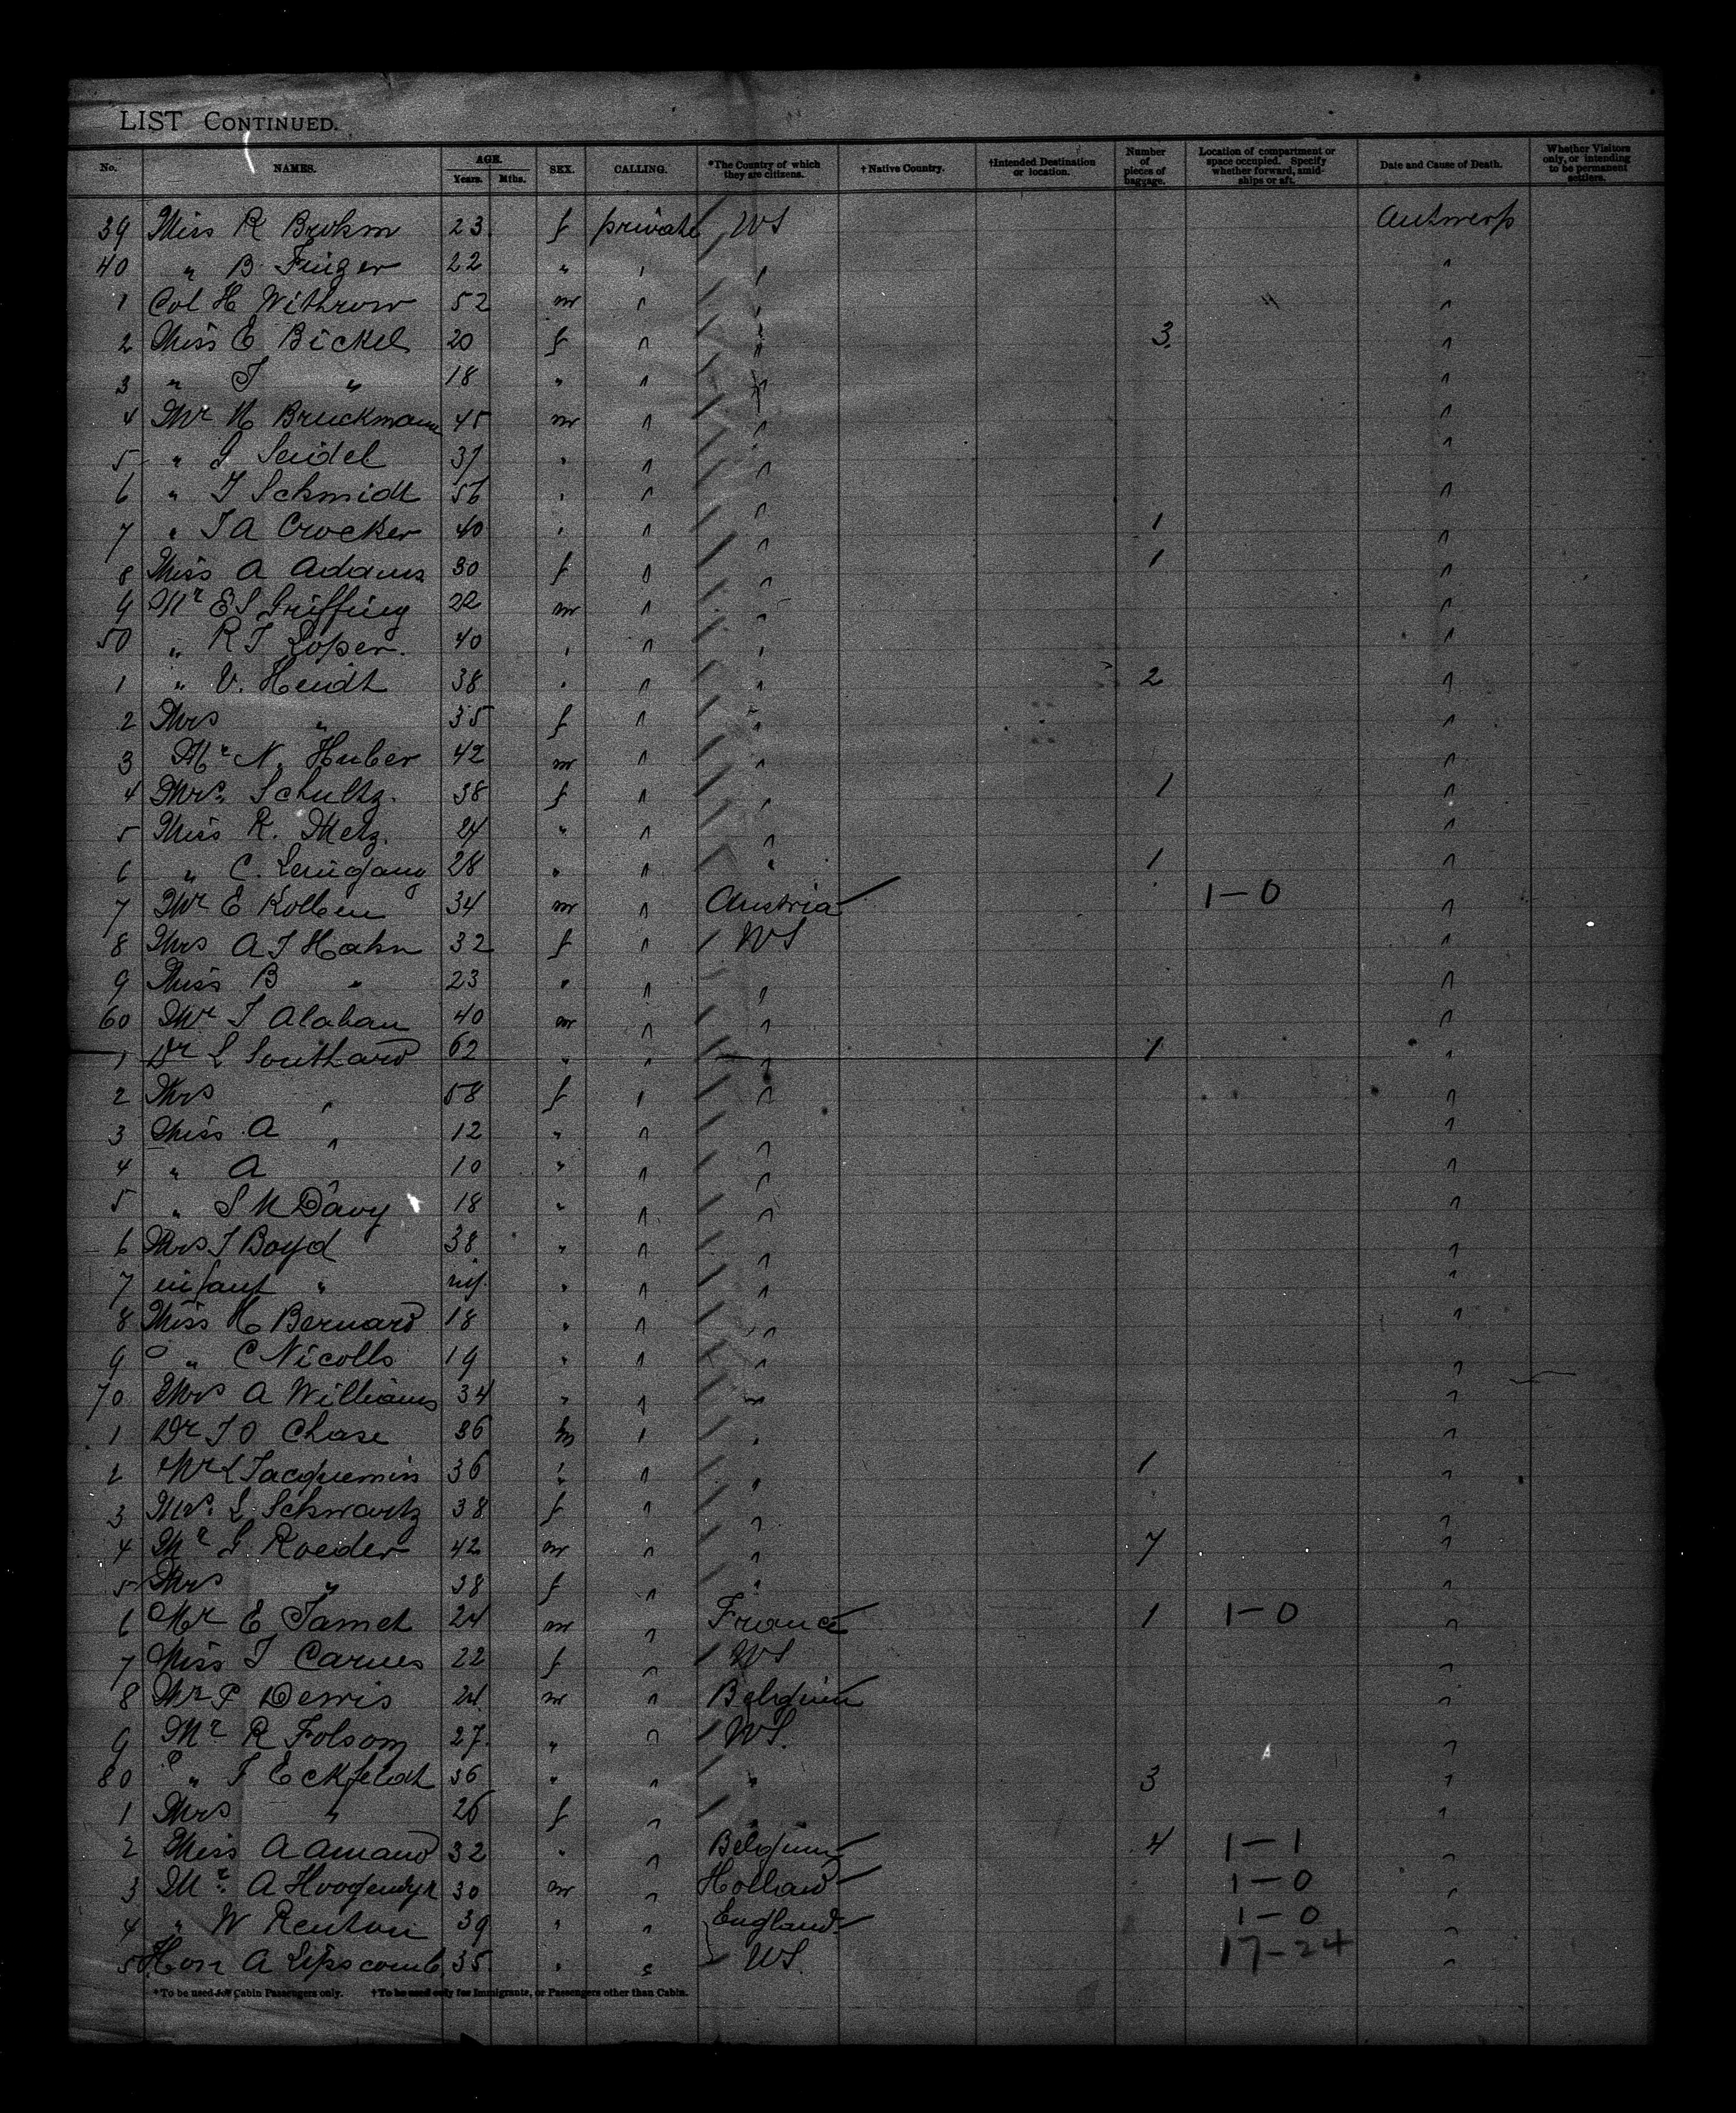 LIST CONTINUED.
No. NAMES. AGE. Years. Mths. SEX. CALLING. *The Country of which they are citizens. †Native Country. †Intended Destination or location. Number of pieces of baggage. Location of compartment or space occupied. Specify whether forward, amidships or aft. Date and Cause of Death. Whether Visitors only, or intending to be permanent settlers.
39 Miss R 23 f private / US Antwerp
40 " B Finger 22 " " / " "
1 Col H Withrow 52 m " / " "
2 Miss E Bickel 20 f " / " 3 "
3 " T " 18 " " / " "
4 Mr H Bruckmann 45 m " / " "
5 " G Seidel 37 " " / " "
6 " T Schmidt 56 " " / " "
7 " T A Crocker 40 " " / " 1 "
8 Miss A Adams 30 f " / " 1 "
9 Mr E S Griffing 22 m " / " "
50 " R T Loper. 40 " " / " "
1 " V. Heidt 38 " " / " 2 "
2 Mrs " 35 f " / " "
3 Mr N. Huber 42 m " / " "
4 Mrs Schultz. 38 f " / " 1 "
5 Miss R. Metz. 24 " " / " "
6 " C. 28 " " / " 1 "
7 Mr E Kolben 34 m " Austria 1-0 "
8 Mrs A T Hahn 32 f " / US "
9 Miss B " 23 " " / " "
60 Mr T Alahan 40 m " / " "
1 Dr L Southard 62 " " / " 1 "
2 Mrs " 58 f " / " "
3 Miss A " 12 " " / " "
4 " A 10 " " / " "
5 " S M Davy 18 " " / " "
6 Mrs T Boyd 38 " " / " "
7 infant " inf. " " / " "
8 Miss H Bernard 18 " " / " "
9 " C Nicolls 19 " " / " "
70 Mrs A Williams 34 " " / " "
1 Dr T O Chase 36 m " / " "
2 Mr L Jacquemin 36 " " / " 1 "
3 Mrs. L Schwartz 38 f " / " "
4 Mr G Roeder 42 m " / " 7 "
5 Mrs " 38 f " / " "
6 Mr E Jamet 24 m " France 1 1-0 "
7 Miss T Carnes 22 f " / US "
8 Mr P Dewis 24 m " Belgium "
9 Mr R Folsom 27 " " / US. "
80 " T Eckfeldt 36 " " / " 3 "
1 Mrs " 26 f " / " "
2 Miss A Amand 32 " " Belgium 4 1-1 "
3 Mr. A Hoogendyk 30 m " Holland 1-0 "
4 " W Renton 39 " " England 1-0 "
5 Hon A Lipscomb 35 " " / US. 17-24 "
*To be used for Cabin Passengers only. †To be used only for Immigrants, or Passengers other than Cabin.